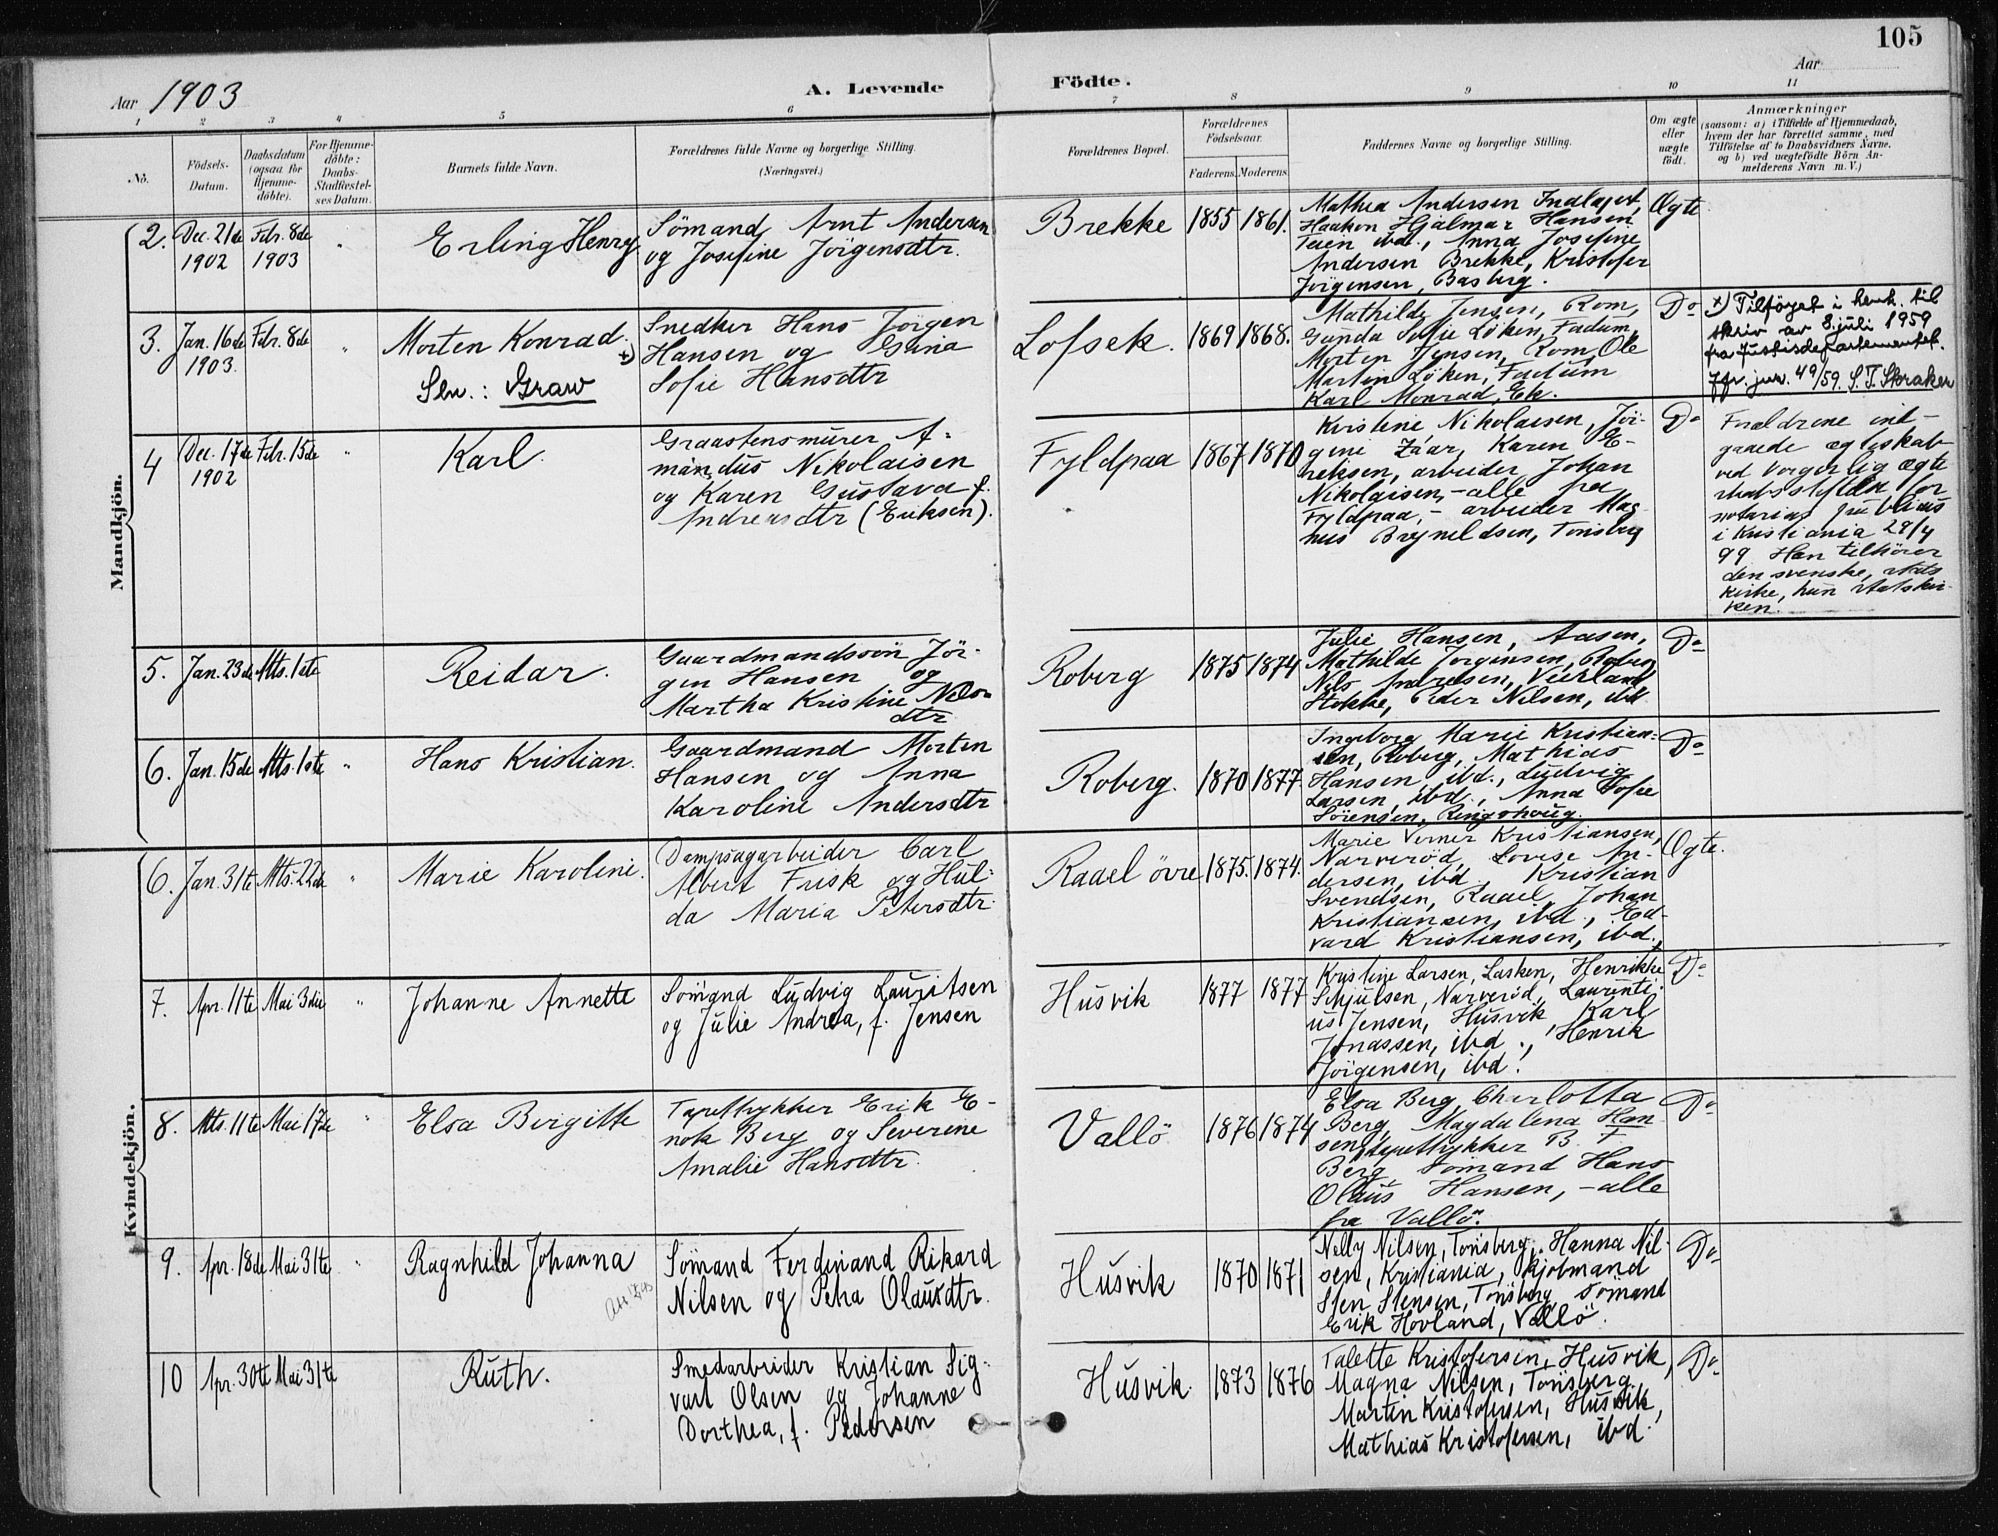 105
Aar 1903
A. Levende
Födte.
Aar
1 2 3 4 5 6 7 8 9 10 11
No.
Födsels-
Datum.
Daabsdatum
(ogsaa for
Hjemme-
döbte).
For Hjemme-
döbte:
Daabs-
Stadfæstel-
ses Datum.
Barnets fulde Navn.
Forældrenes fulde Navne og borgerlige Stilling.
(Næringsvei.)
Forældrenes Bopæl.
Forældrenes
Födselsaar.
Faderens. Moderens.
Faddernes Navne og borgerlige Stilling.
Om ægte
eller
uægte
födt.
Anmærkninger
(saasom: a) i Tilfælde af Hjemmedaab,
hvem der har forrettet samme, med
Tilföielse af to Daabsvidners Navne,
og b) ved uægtefödte Börn An-
melderens Navn m. V.)
Mandkjön.
2. Dec. 21de
1902
Febr. 8de
1903
"
Erling Henry
Sömand Arnt Andersen
og Josefine Jörgensdtr.
Brekke
1855 1861.
Mathea Andersen
Haakon Hjalmar Hansen
Teien ibd., Anna Josefine
Andersen Brekke, Kristofer
Jörgensen, Basberg.
Ægte
3. Jan. 16de
1903.
Febr. 8de
"
Morten Konrad. +)
Sln.: Graw
Snedker Hans Jörgen
Hansen og Gina
Sofie Hansdtr
Lofsek.
1869 1868.
Mathilde Jensen, Rom,
Gunda Sofie Løken, Fadum,
Morten Jensen, Rom, Ole
Martin Løken, Fadum
Karl Monrad, Ek.
Do
+) Tilföyet i henh. til
skriv av 8. juli 1959
fra Justisdepartementet.
Jfr. jur. 49/59. S. T. Skraker
4 Dec. 17de
1902
Febr. 15de
"
Karl.
Graastensmurer A-
mandus Nikolaisen
og Karen Gustava f.
Andreasdtr (Eriksen).
Fyldpaa
1867 1870
Kristine Nikolaisen, Jör-
gine Zaar, Karen E-
reksen, arbeider Johan
Nikolaisen, - alle fra
Fyldpaa, - arbeider Mag-
nus Brynildsen, Tönsberg
Do
Forældrene ind-
gaaede ægteskab
ved borgerlig ægte
skabsstiftelse for
notarius publicus
i Kristiania 29/4
99 Han tilhörer
den svenske stats
kirke, hun statskir-
ken.
5. Jan. 23de Mts. 1ste
Reidar.
Gaardmandssön Jör-
gen Hansen og
Martha Kristine Nils-
dtr
Roberg
1875 1874
Julie Hansen, Aasen,
Mathilde Jörgensen, Roberg
Nils Andresen, Veirland
Stokke, Peder Nilsen, ibd
Do
6. Jan. 15de Mts. 1ste "
Hans Kristian.
Gaardmand Morten
Hansen og Anna
Karoline Andersdtr
Roberg.
1870 1877.
Ingeborg Marie Kristian-
sen, Roberg, Mathias
Hansen ibd., Ludvig
Larsen, ibd., Anna Sofie
Sörensen, Ringshoug.
Do
Kvindekjön.
6. Jan. 31te Mts. 22de "
Marie Karoline.
Dampsagarbeider Carl
Albert Frisk og Hul-
da Maria Petersdtr.
Raael övre
1875. 1874.
Marie Verner Kristiansen,
Narveröd, Lovise An-
dersen, ibd., Kristian
Svendsen, Raael, Johan
Kristiansen, ibd., Ed-
vard Kristiansen, ibd.
Ægte.
7. Apr. 11te Mai 3die "
Johanne Annette
Sömand Ludvig Lauritsen
og Julie Andrea, f. Jensen
Husvik
1877 1877
Kristine Larsen, Lasken, Henrikke
Schjulsen, Narveröd, Laurenti-
us Jensen, Husvik, Karl
Jonassen, ibd., Henrik
Jörgensen, ibd.
Do
8. Mts. 11te Mai 17de "
Elsa Bergitte
Tapettrykker Erik E-
nok Berg og Severine
Amalie Hansdtr.
Vallö
1876 1874
Elsa Berg, Charlotta
Berg, Magdalena Han-
sen, tapettrykker B. F.
Berg, Sömand Hans
Olaus Hansen, - alle
fra Vallö.
Do
9. Apr. 18de Mai 31te "
Ragnhild Johanna
Sömand Ferdinand Rikard
Nilsen og Petra Olausdtr.
Husvik
1870 1871
Nelly Nilsen, Tönsberg, Hanna Nil-
sen, Kristiania, kjöbmand
Sten Stensen, Tönsberg, Sömand
Erik Hovland, Vallö.
Do
10 Apr. 30te Mai 31te
Ruth.
Smedarbeider Kristian Sig-
vart Olsen og Johanne
Dorthea, f. Pedersen
Husvik.
1873 1876
Talette Kristofersen, Husvik,
Magna Nilsen, Tönsberg,
Martin Kristofersen, Husvik,
Mathias Kristofersen, ibd.
Do